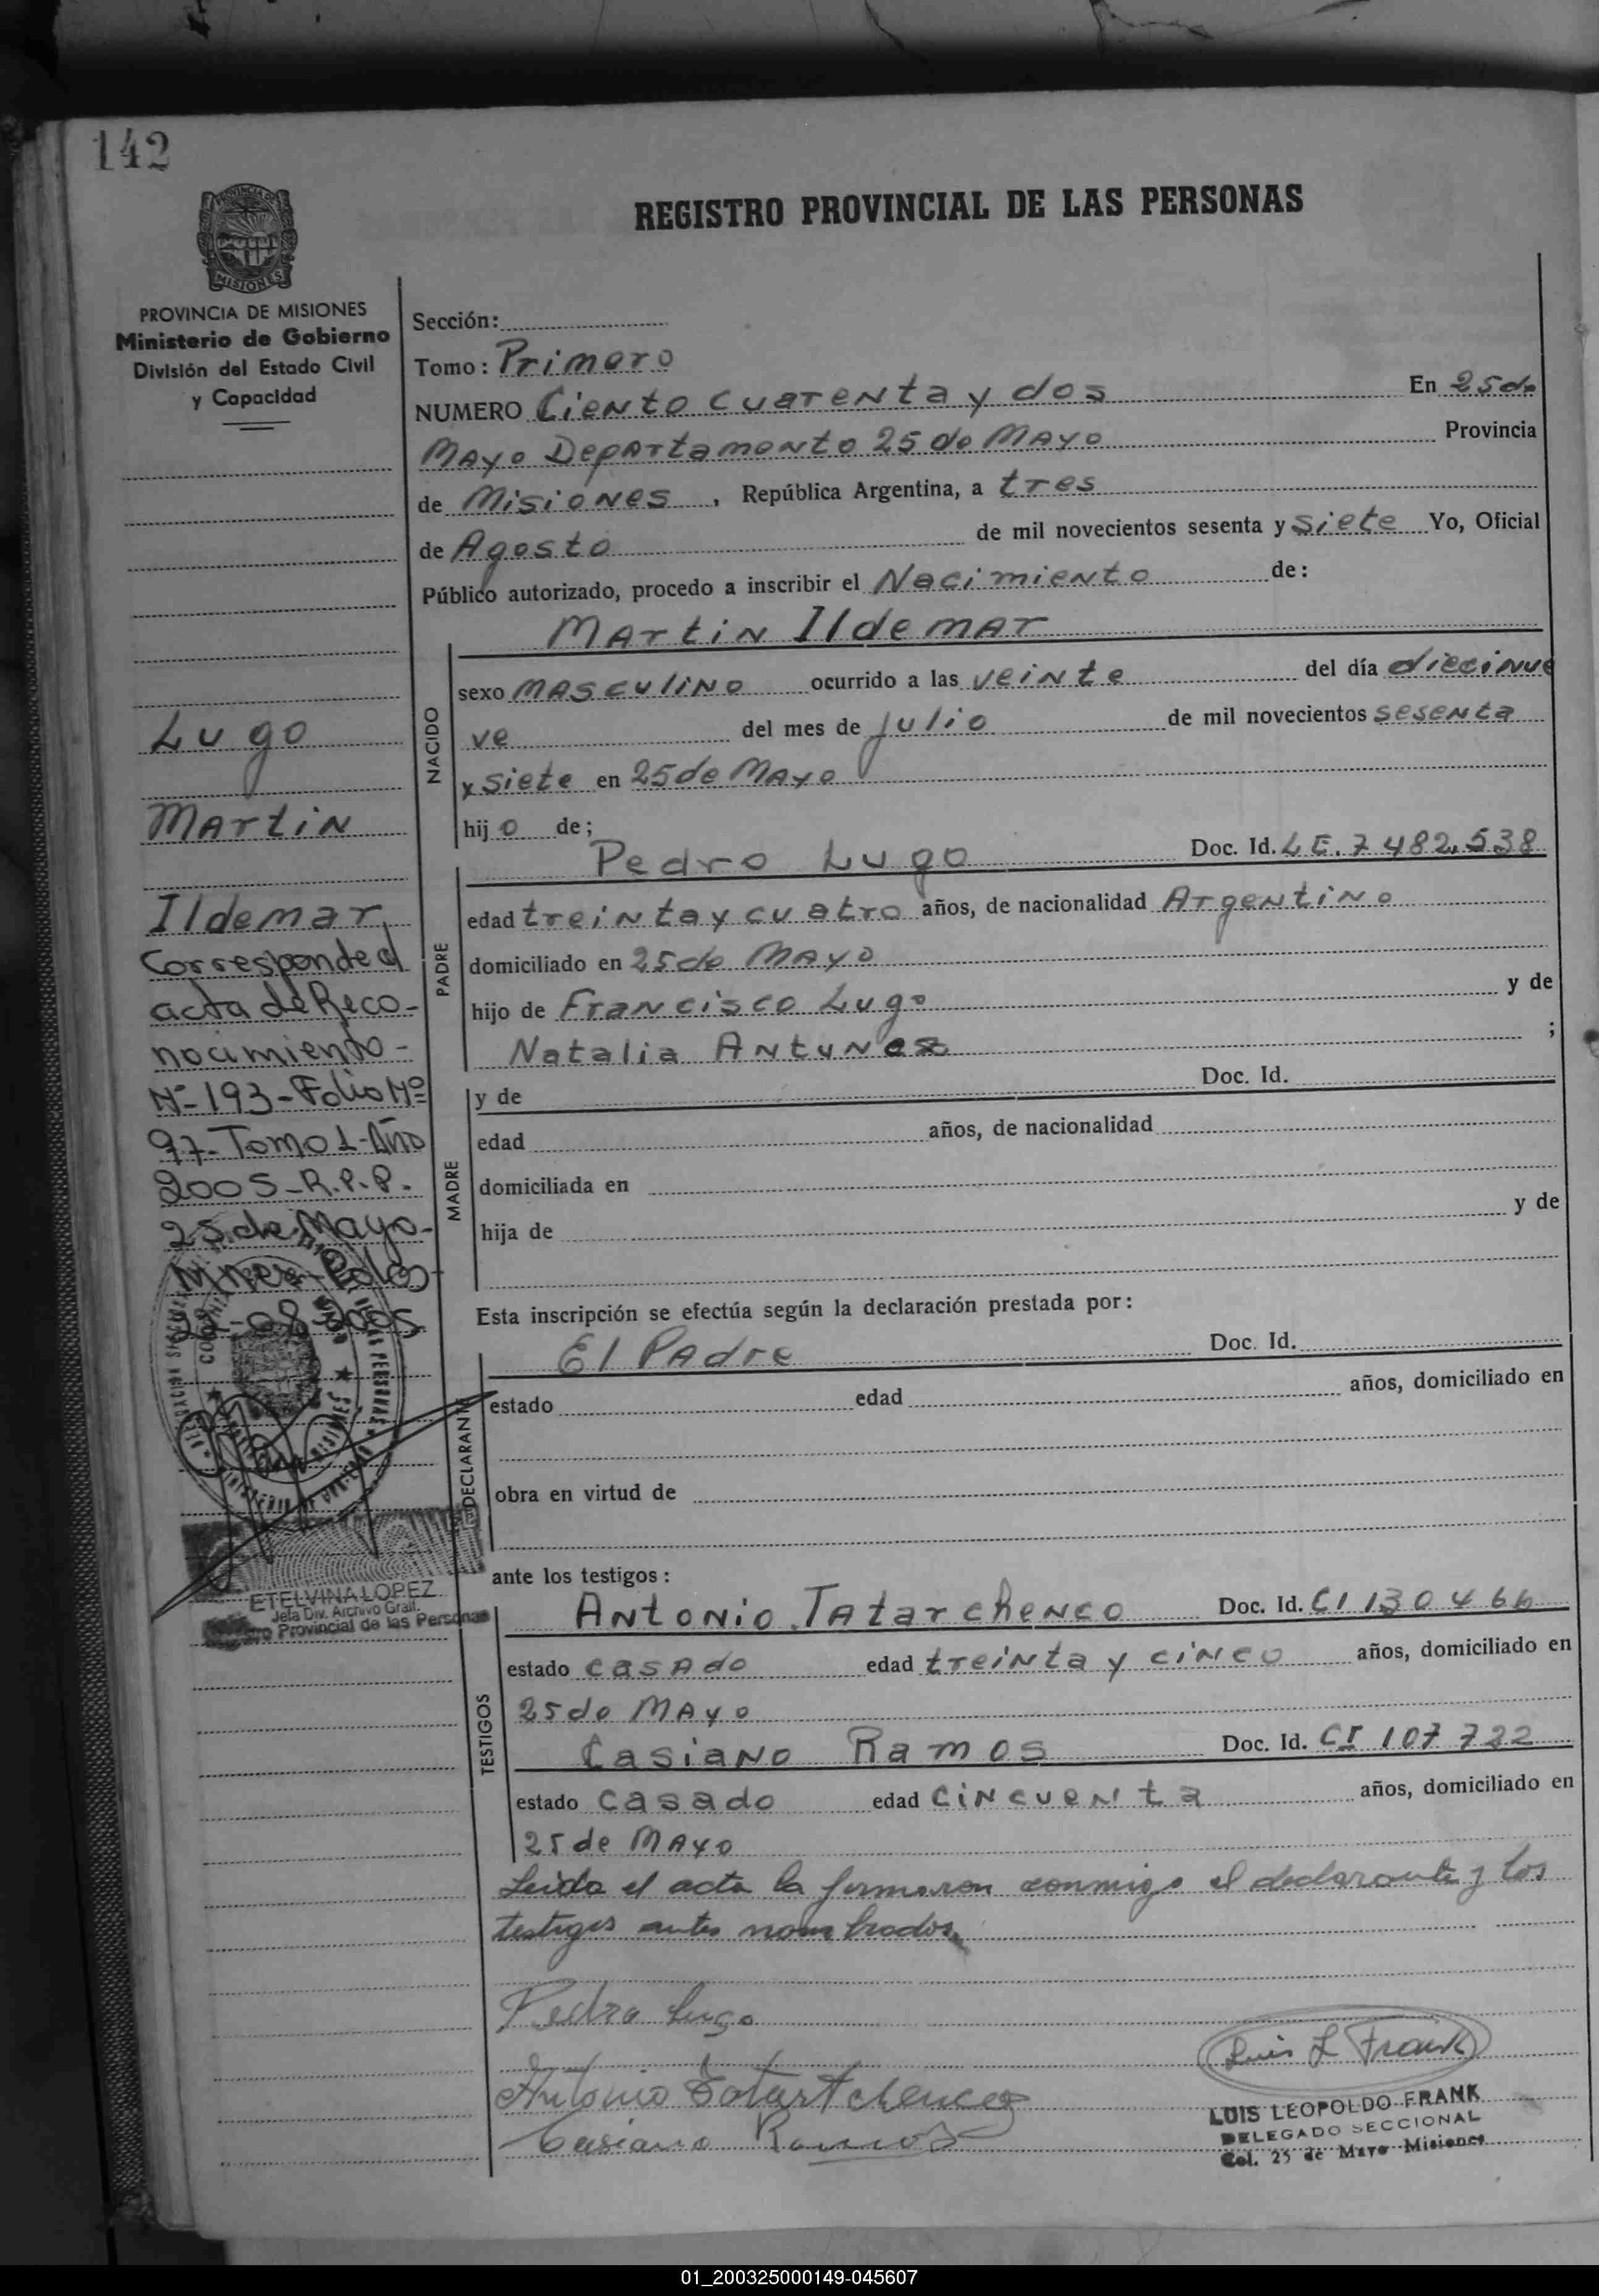 142
PROVINCIA DE MISIONES
REGISTRO PROVINCIAL DE LAS PERSONAS
PROVINCIA DE MISIONES
Ministerio de Gobierno
División del Estado Civil
y Capacidad
Lugo
Martin
Ildemar
Corresponde al
acta de Reco-
nocimiento-
Nº-193-Folio Nº
97-Tomo 1-Año
2005-R.P.P.
25 de Mayo-
Mnes-
22-08-2005
ETELVINA LOPEZ
Jefa Div. Archivo Gral.
Provincial de las Personas
Sección:
Tomo: Primero
NUMERO Ciento cuarenta y dos En 25 de
Mayo Departamento 25 de Mayo Provincia
de Misiones, República Argentina, a tres
de Agosto de mil novecientos sesenta y siete Yo, Oficial
Público autorizado, procedo a inscribir el Nacimiento de:
Martin Ildemar
NACIDO
sexo masculino ocurrido a las veinte del día diecinue
ve del mes de Julio de mil novecientos sesenta
y siete en 25 de Mayo
hijo de;
Pedro Lugo Doc. Id. L E. 7 482.538
PADRE
edad treinta y cuatro años, de nacionalidad Argentino
domiciliado en 25 de Mayo
hijo de Francisco Lugo y de
Natalia Antunez ;
y de Doc. Id.
MADRE
edad años, de nacionalidad
domiciliada en
hija de y de
Esta inscripción se efectúa según la declaración prestada por:
El Padre Doc. Id.
DECLARANTE
estado edad años, domiciliado en
obra en virtud de
ante los testigos:
Antonio Tatarchenco Doc. Id. CI 130466
TESTIGOS
estado casado edad treinta y cinco años, domiciliado en
25 de Mayo
Casiano Ramos Doc. Id. CI 107 722
estado casado edad cincuenta años, domiciliado en
25 de Mayo
Leida el acta la firmaron conmigo el declarante y los
testigos antes nombrados
Pedro Lugo
Antonio Tatartchenco
Casiano Ramos
Luis L Frank
LUIS LEOPOLDO FRANK
DELEGADO SECCIONAL
Col. 25 de Mayo Misiones
01_200325000149-045607